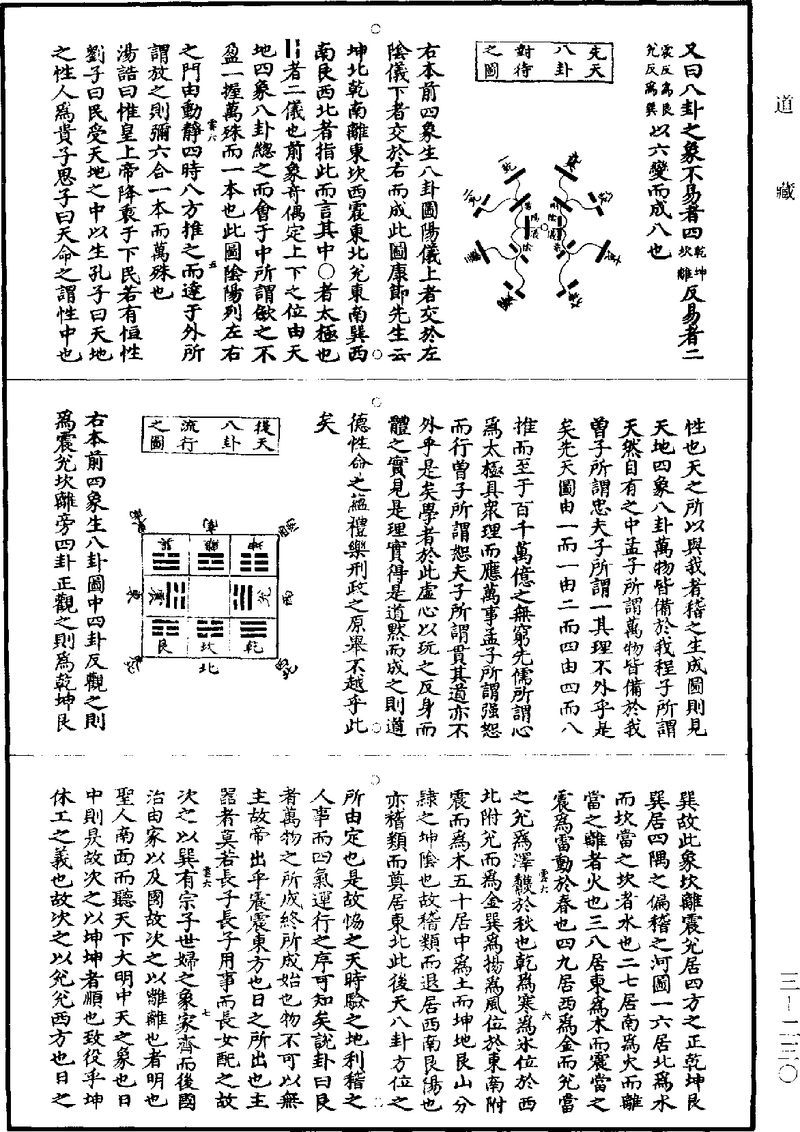 道藏
又曰八卦之象不易者四乾坤坎離反易者二
震反為艮兌反為巽以六變而成八也
先天
八卦
對待
之圖
右本前四象生八卦圖陽儀上者交於左
陰儀下者交於右而成此圖康節先生云
坤北乾南離東坎西震東北兌東南巽西
南艮西北者指此而言其中○者太極也
者二儀也前象奇偶定上下之位由天
地四象八卦總之而會于中所謂斂之不
盈一握萬殊而一本也此圖陰陽列左右
之門由動靜四時八方推之而達于外所
謂放之則彌六合一本而萬殊也
湯誥曰惟皇上帝降衷于下民若有恒性
劉子曰民受天地之中以生孔子曰天地
之性人為貴子思子曰天命之謂性中也
性也天之所以與我者稽之生成圖則見
天地四象八卦萬物皆備於我程子所謂
天然自有之中孟子所謂萬物皆備於我
曾子所謂忠夫子所謂一其理不外乎是
矣先天圖由一而一由二而四由四而八
推而至于百千萬億之無窮先儒所謂心
為太極具衆理而應萬事孟子所謂强恕
而行曾子所謂恕夫子所謂貫其道亦不
外乎是矣學者於此虛心以玩之反身而
體之實見是理實得是道默而成之則道
德性命之蘊禮樂刑政之原舉不越乎此
矣
後天
八卦
流行
之圖
坤
離
巽
兌
震
乾
坎
艮
北
右本前四象生八卦圖中四卦反觀之則
為震兌坎離旁四卦正觀之則為乾坤艮
巽故此象坎離震兌居四方之正乾坤艮
巽居四隅之偏稽之河圖一六居北為水
而坎當之坎者水也二七居南為火而離
當之離者火也三八居東為木而震當之
震為雷動於春也四九居西為金而兌當
之兌為澤☐於秋也乾為寒為冰位於西
北附兌而為金巽為揚為風位於東南附
震而為木五十居中為土而坤地艮山分
隷之坤陰也故稽類而退居西南艮陽也
亦稽類而奠居東北此後天八卦方位之
所由定也是故恊之天時驗之地利稽之
人事而四氣運行之序可知矣說卦曰艮
者萬物之所成終所成始也物不可以無
主故帝出乎震震東方也日之所出也主
器者莫若長子長子用事而長女配之故
次之以巽有宗子世婦之象家齊而後國
治由家以及國故次之以離離也者明也
聖人南面而聽天下大明中天之象也日
中則昃故次之以坤坤者順也致役乎坤
休工之義也故次之以兌兌西方也日之
三－二三〇